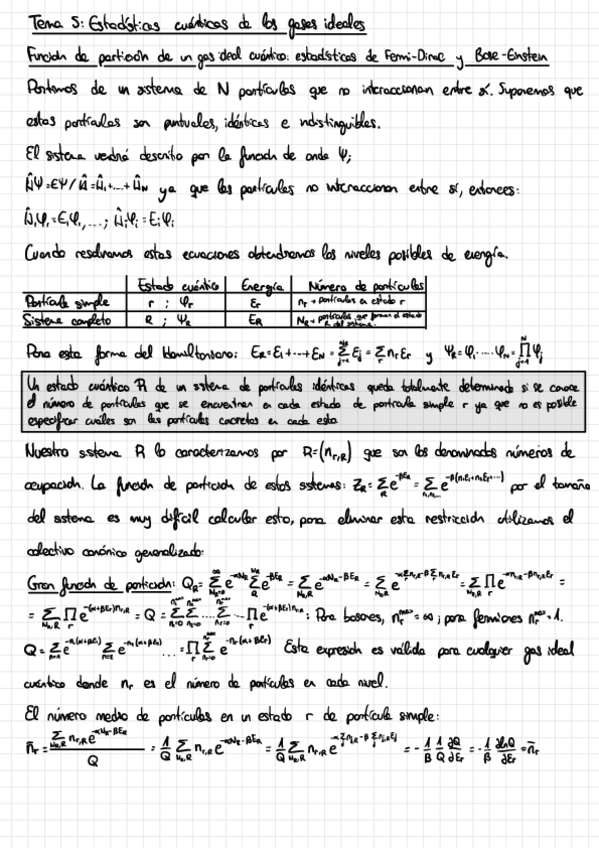 Tema 5: Estadísticas cuánticas de los gases ideales
Función de partición de un gas ideal cuántico: estadísticas de Fermi-Dirac y Bose-Einstein
Partimos de un sistema de N partículas que no interaccionan entre sí. Suponemos que
estas partículas son puntuales, idénticas e indistinguibles.
El sistema vendrá descrito por la función de onda Ψ;
ĤΨ=EΨ / Ĥ=Ĥ₁+...+Ĥ_N ya que las partículas no interaccionan entre sí, entonces:
Ĥ₁φ₁=E₁φ₁,...; Ĥᵢφᵢ=Eᵢφᵢ
Cuando resolvamos estas ecuaciones obtendremos los niveles posibles de energía.
Estado cuántico Energía Número de partículas
Partícula simple r ; φ_r ε_r n_r → partículas en estado r
Sistema completo R ; Ψ_R E_R N_R → partículas que forman el estado R del sistema.
Para esta forma del Hamiltoniano: E_R=ε₁+...+ε_N=∑_{j=1}^{N_R} ε_j=∑_r n_r ε_r y Ψ_R=φ₁·...·φ_N=∏_{j=1}^{N} φ_j
Un estado cuántico R de un sistema de partículas idénticas queda totalmente determinado si se conoce
el número de partículas que se encuentran en cada estado de partícula simple r ya que no es posible
especificar cuáles son las partículas concretas en cada esto
Nuestro sistema R lo caracterizamos por R=(n_{r,R}) que son los denominados números de
ocupación. La función de partición de estos sistemas: Z_R=∑_R e^{-βE_R}=∑_{n₁,n₂,...} e^{-β(n₁ε₁+n₂ε₂+...)} por el tamaño
del sistema es muy difícil calcular esto, para eliminar esta restricción utilizamos el
colectivo canónico generalizado:
Gran función de partición: Q_R=∑_{N_R=0}^{∞} e^{-αN_R} ∑_R^{N_R} e^{-βE_R}=∑_{N_R,R} e^{-αN_R-βE_R}=∑_{N_R,R} e^{-α∑n_{r,R}-β∑n_{r,R}ε_r}=∑_{N_R,R} ∏_r e^{-αn_{r,R}-βn_{r,R}ε_r}=
=∑_{N_R,R} ∏_r e^{-(α+βε_r)n_{r,R}}=Q=∑_{n₁=0}^{n₁^{max}} ∑_{n₂=0}^{n₂^{max}} ....∑_{n_r=0}^{n_r^{max}} ... ∏_r e^{-(α+βε_r)n_{r,R}}; Para bosones, n_r^{max}=∞; para fermiones n_r^{max}=1.
Q=∑ e^{-n₁(α+βε₁)} ∑ e^{-n₂(α+βε₂)} ...=∏_r ∑_{n_r=0}^{n_r^{max}} e^{-n_r(α+βε_r)} Esta expresión es válida para cualquier gas ideal
cuántico donde n_r es el número de partículas en cada nivel.
El número medio de partículas en un estado r de partícula simple:
n̄_r=∑_{N_R,R} n_{r,R} e^{-αN_R-βE_R} / Q = 1/Q ∑_{N_R,R} n_{r,R} e^{-αN_R-βE_R}=1/Q ∑_{N_R,R} n_{r,R} e^{-α∑_j n_{j,R}-β∑_j n_{j,R}ε_j}=-1/β 1/Q ∂Q/∂ε_r=-1/β ∂lnQ/∂ε_r=n̄_r